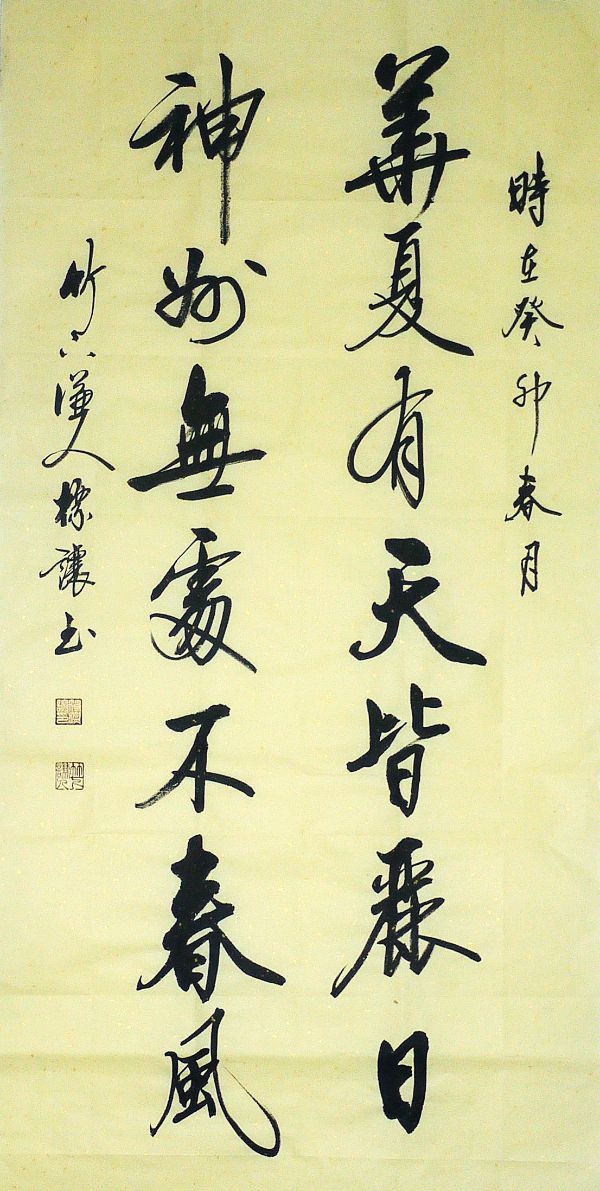 時在癸卯春月
華夏有天皆麗日
神州無處不春風
竹六謙人樣讓書